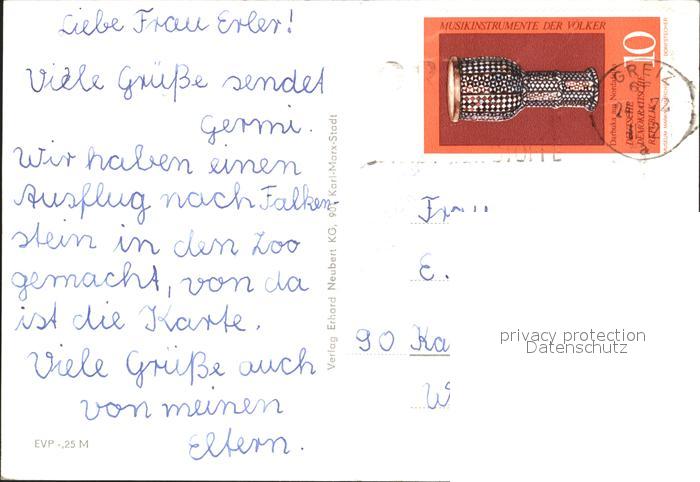 Liebe Frau Erler!
Viele Grüße sendet
Germi.
Wir haben einen
Ausflug nach Falken-
stein in den Zoo
gemacht, von da
ist die Karte.
Viele Grüße auch
von meinen
Eltern.
EVP -,25 M
Verlag Erhard Neubert KG, 90 Karl-Marx-Stadt
MUSIKINSTRUMENTE DER VÖLKER
10
Darbuka aus Nordafrika
DEUTSCHE
DEMOKRATISCHE
REPUBLIK
GREIZ
E.
90 Ka
privacy protection
Datenschutz